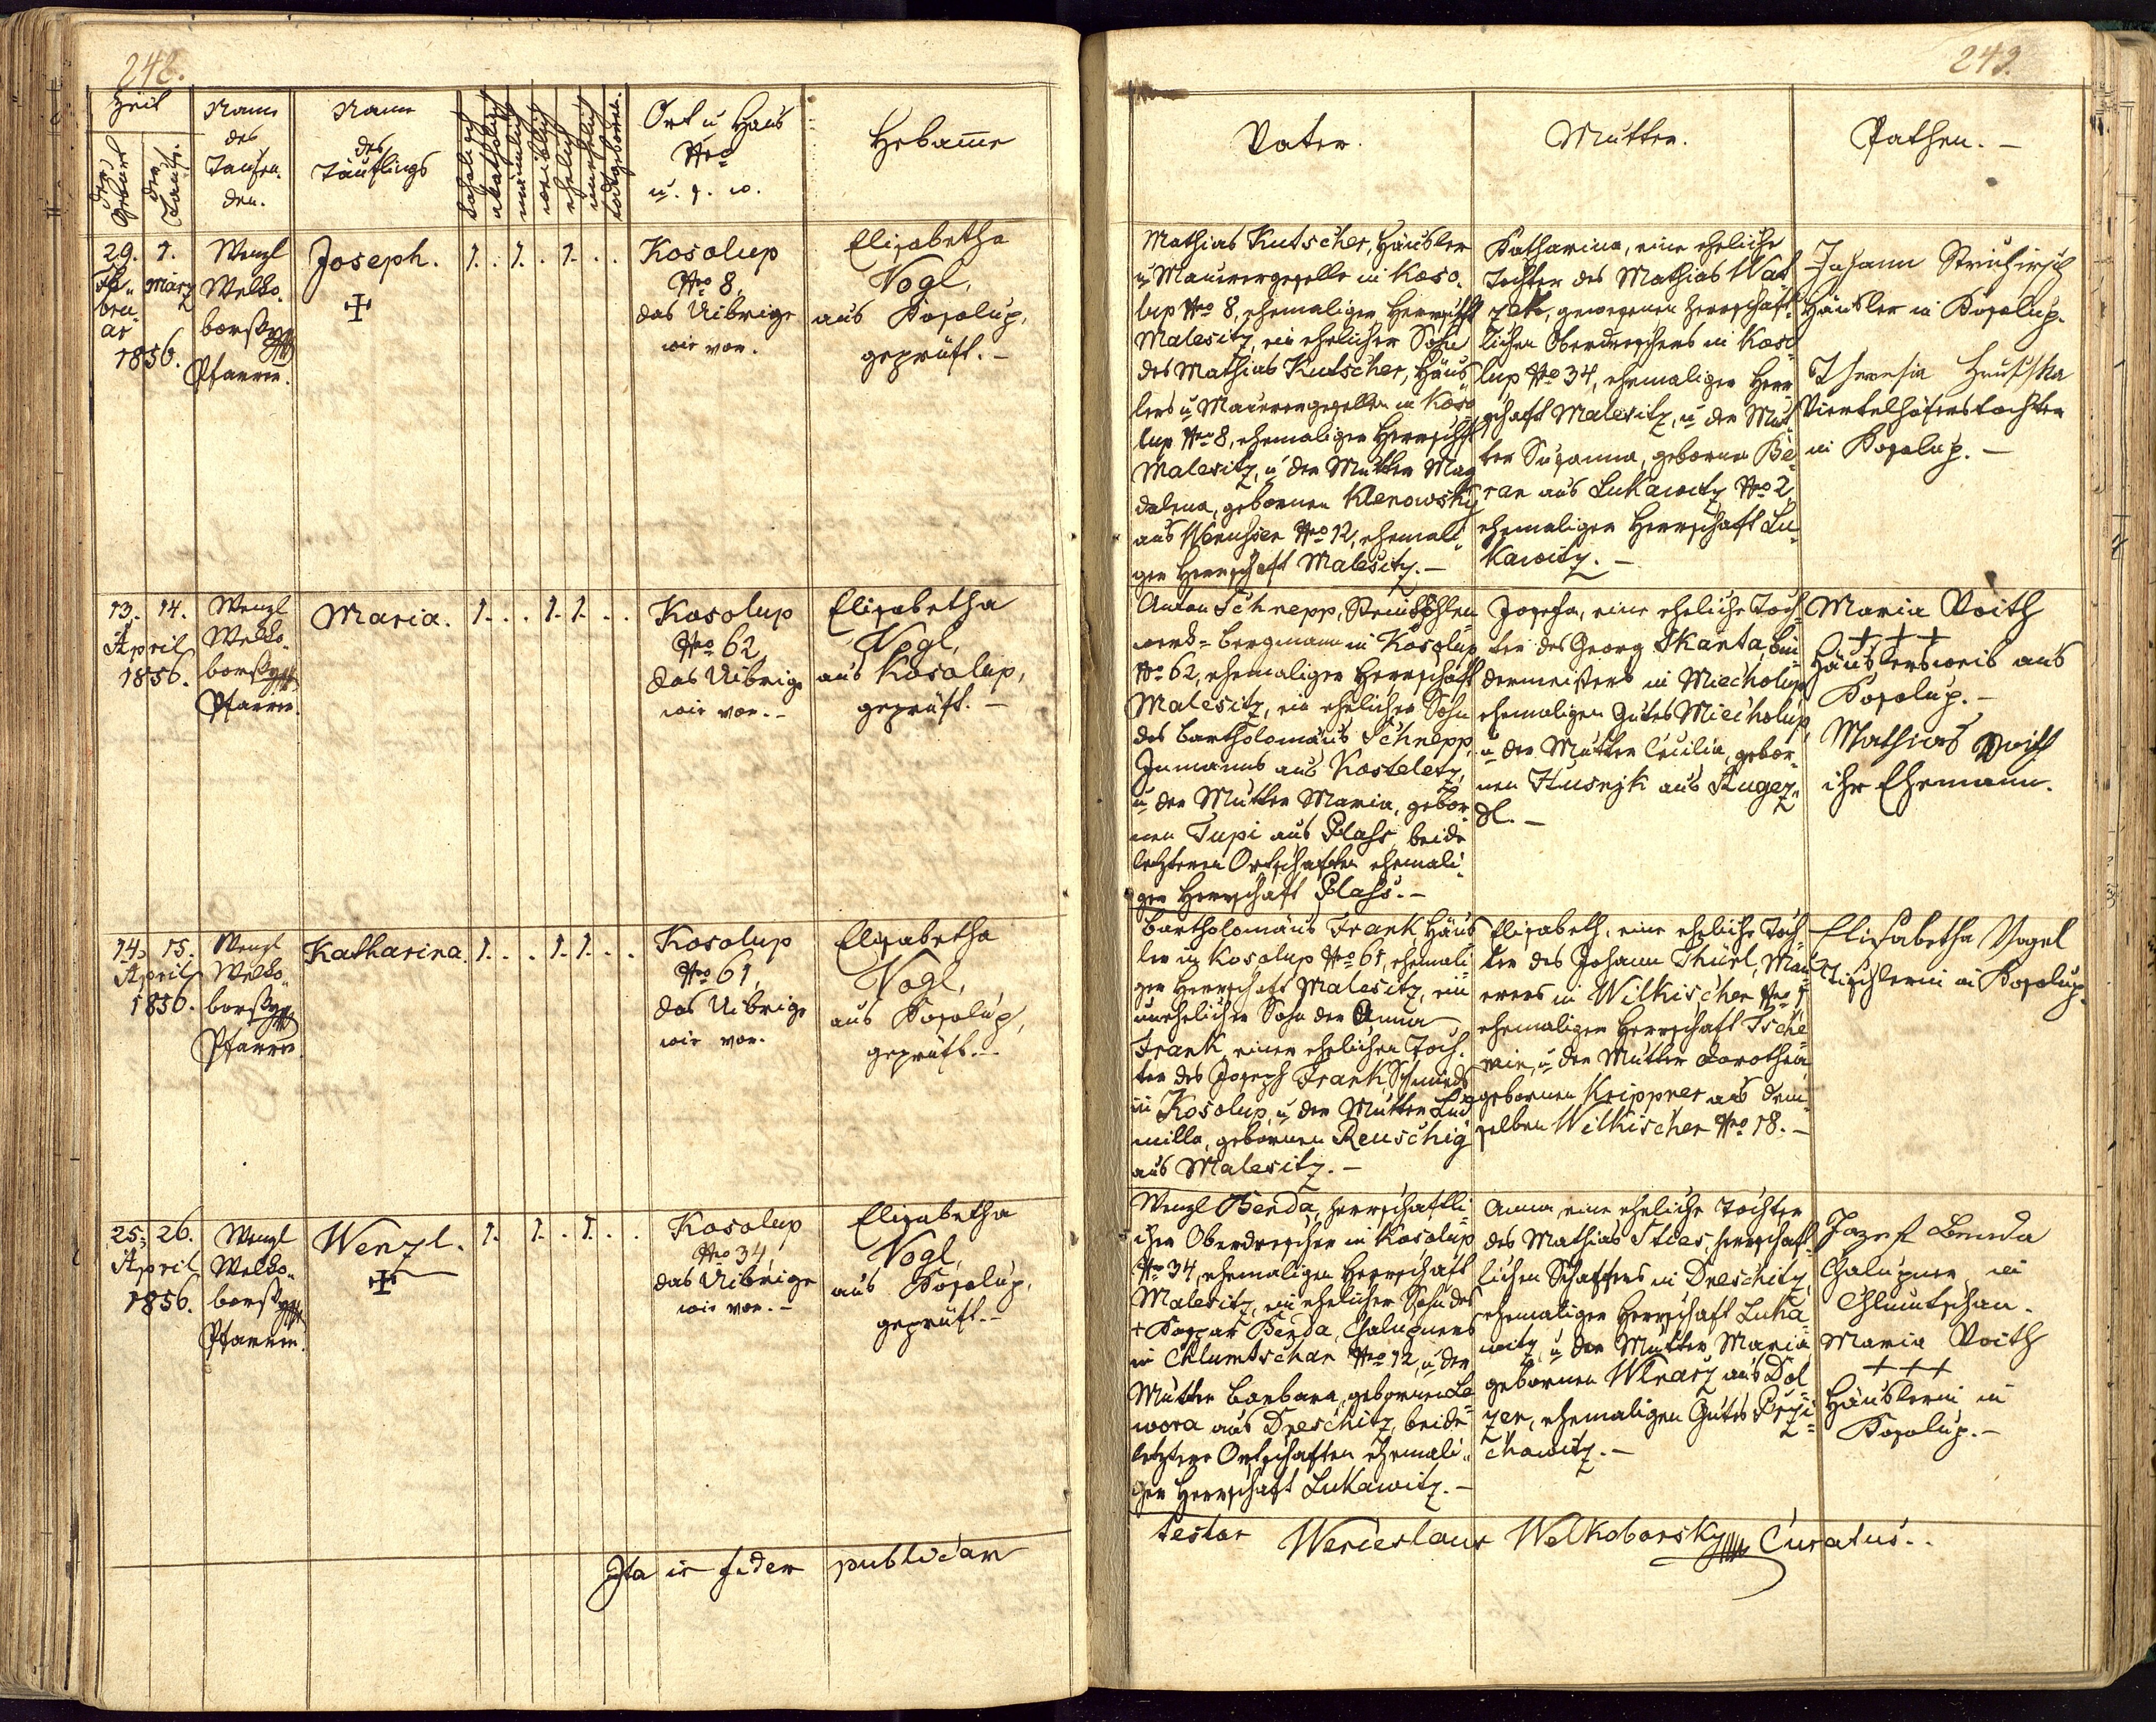 248.
Zeit
der Geburt
der Taufe.
Name
des
Taufen-
den.
Name
des
Täuflings
katholisch
akatholisch
männlich
weiblich
ehelich
unehelich
todtgeboren.
Ort u Haus
Nro
u. s. w.
Hebamme
29. 1.
Fe- März
bru-
ar
1856.
Wenzl
Welko-
borsky
Pfarrer.
Joseph.
1. . 1. . 1. . .
Kosolup
Nro 8,
das Uibrige
wie vor.
Elisabetha
Vogl,
aus Kosolup,
geprüft. –
13. 14.
April
1856.
Wenzl
Welko-
borsky
Pfarrer.
Maria.
1. . . 1. 1. . .
Kosolup
Nro 62,
das Uibrige
wie vor. –
Elisabetha
Vogl,
aus Kosolup,
geprüft. –
14. 15.
April
1856.
Wenzl
Welko-
borsky
Pfarrer.
Katharina.
1. . . 1. 1. . .
Kosolup
Nro 61,
das Uibrige
wie vor.
Elisabetha
Vogl,
aus Kosolup,
geprüft. –
25. 26.
April
1856.
Wenzl
Welko-
borsky
Pfarrer.
Wenzl.
1. 1. . 1. . .
Kosolup
Nro 34,
das Uibrige
wie vor. –
Elisabetha
Vogl,
aus Kosolup,
geprüft. –
Ita in fidem publicam
249.
Vater.
Mutter.
Pathen. –
Mathias Kutscher, Häusler
u Maurergeselle in Koso-
lup Nro 8, ehemaliger Herrschft
Malesitz, ein ehelicher Sohn
des Mathias Kutscher, Häus-
lers u Maurergesellen in Koso-
lup Nro 8, ehemaliger Herrschft
Malesitz, u der Mutter Mag-
dalena, gebornen Klenowsky
aus Wenussen Nro 12, ehemali-
ger Herrschaft Malesitz. –
Katharina, eine eheliche
Tochter des Mathias Wat-
zek, gewesenen herrschaft-
lichen Oberdreschers in Koso-
lup Nro 34, ehemaliger Herr-
schaft Malesitz, u der Mut-
ter Susanna, geborne Be-
ran aus Lukawitz Nro 2,
ehemaliger Herrschaft Lu-
kawitz. –
Johann
Häusler in Kosolup.
Theresia Hruschka
Viertelhöferstochter
in Kosolup. –
Anton Schnepp, Steinkohlen-
werks-Bergmann in Kosolup
Nro 62, ehemaliger Herrschaft
Malesitz, ein ehelicher Sohn
des Bartholomäus Schnepp,
Inmanns aus Kosteletz,
u der Mutter Maria, gebor-
nen Tupi aus Plass, beide
letzteren Ortschaften ehemali-
ger Herrschaft Plass. –
Josefa, eine eheliche Toch-
ter des Georg Skanta, Bin-
dermeisters in Miecholup,
ehemaligen Gutes Miecholup,
u der Mutter Cäcilia, gebor-
nen Husnjk aus Augez-
dl. –
Maria Voith
+ + +
Häuslersweib aus
Kosolup. –
Mathias Voith
ihr Ehemann.
Bartholomäus Frank, Häus-
ler in Kosolup Nro 61, ehemali-
ger Herrschaft Malesitz, ein
unehelicher Sohn der Anna
Frank, einer ehelichen Toch-
ter des Joseph Frank, Schmieds
in Kosolup, u der Mutter Lud-
milla, gebornen Reuschig
aus Malesitz. –
Elisabeth, eine eheliche Toch-
ter des Johann Thürl, Mau-
rers in Wilkischen Nro 1
ehemaliger Herrschaft Tsche-
min, u der Mutter Dorothea
gebornen Krippner aus dem-
selben Wilkischen Nro 18. –
Elisabetha Vogel
Tischlerin in Kosolup.
Wenzl Benda, herrschaftli-
cher Oberdrescher in Kosolup
Nro 34, ehemaligen Herrschaft
Malesitz, ein ehelicher Sohn des
+ Kaspar Benda, Chalupners
in Chlumtschan Nro 12, u der
Mutter Barbara, gebornen Le-
wora aus Dneschitz, beide
letztere Ortschaften ehemali-
ger Herrschaft Lukawitz. –
Anna, eine eheliche Tochter
des Mathias Sties, herrschaft-
lichen Schaffers in Dneschitz,
ehemaliger Herrschaft Luka-
witz, u der Mutter Maria
gebornen Wlnarz aus Dol-
zen, ehemaligen Gutes Przi-
chowitz. –
Jozef Benda
Chalupner in
Chlumtschan.
Maria Voith
+ + +
Häuslerin in
Kosolup. –
testor Wenceslaus Welkoborsky Curatus. .